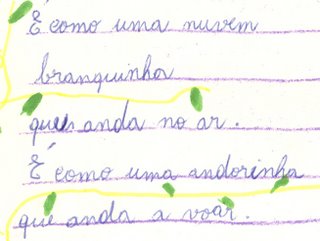 É como uma nuvem
branquinha
que anda no ar.
É como uma andorinha
que anda a voar.